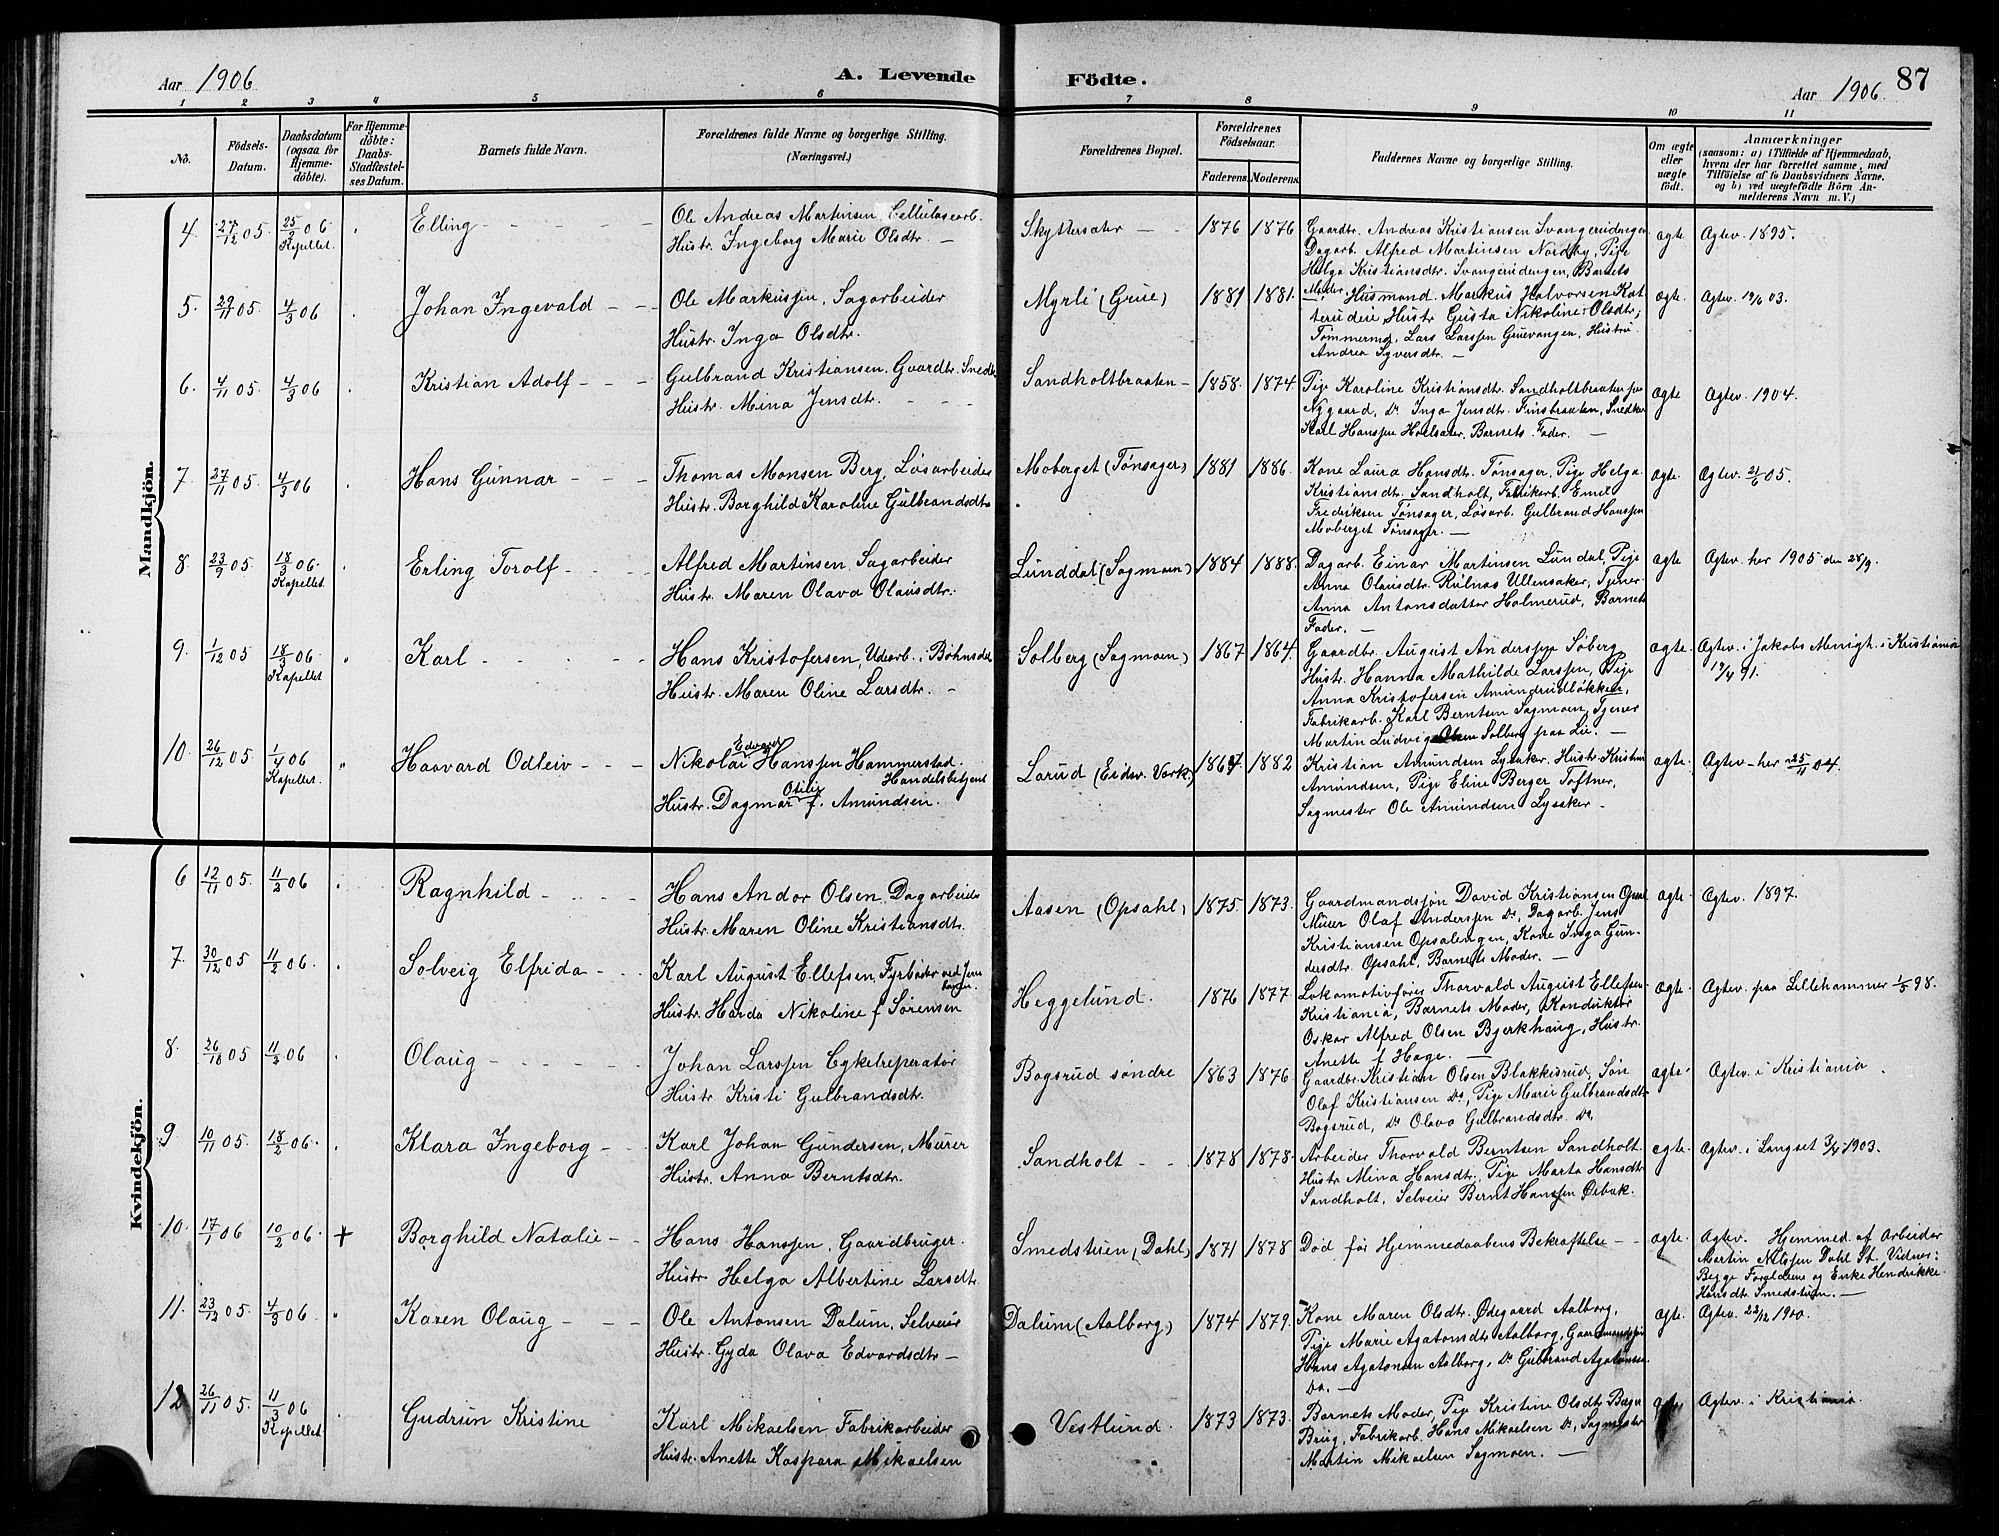 Aar 1906
A. Levende Födte.
Aar 1906.
87
1 2 3 4 5 6 7 8 9 10 11
No.
Födsels-Datum.
Daabsdatum (ogsaa for Hjemme-döbte).
For Hjemme-döbte: Daabs-Stadfæstel-ses Datum.
Barnets fulde Navn.
Forældrenes fulde Navne og borgerlige Stilling. (Næringsvei.)
Forældrenes Bopæl.
Forældrenes Födselsaar.
Faderens. Moderens.
Faddernes Navne og borgerlige Stilling.
Om ægte eller uægte födt.
Anmærkninger
(saasom: a) i Tilfælde af Hjemmedaab,
hvem der har forrettet samme, med
Tilföielse af to Daabsvidners Navne,
og b) ved uægtefödte Börn An-
melderens Navn m. V.)
Mandkjön.
4. 27/12 05. 25/9 06 Kapellet. Elling
Ole Andreas Martinsen, Cellulosearb.
Hustr. Ingeborg Marie Olsdtr.
Skyttersæter 1876 1876
Gaardbr. Andreas Kristiansen Svangerudengen
Dagarb. Alfred Martinsen Nordby, Pige
Helga Kristiansdtr. Svangerudengen, Barnets
Moder.
ægte Ægtev. 1895.
5. 29/11 05 4/3 06 Johan Ingevald
Ole Markussen, Sagarbeider
Hustr. Inga Olsdtr.
Myrli (Grue) 1881 1881.
Husmand. Markus Halvorsen Kat
terudeie, Hustr Gusta Nikoline Olsdtr;
Tømmermd. Lars Larssen Gruevangen, Hustru
Andrea Syversdtr.
ægte. Ægtev. 19/6 03.
6. 4/11 05 4/3 06 Kristian Adolf
Gulbrand Kristiansen, Gaardbr. Snedk.
Hustr. Mina Jensdtr.
Sandholtbraaten 1858. 1874.
Pige Karoline Kristiansdtr. Sandholtbraaten paa
Nygaard, Do Inga Jensdtr. Finsbraaten, Snedker
Karl Hanssen Hoelsæter, Barnets Fader.
ægte Ægtev. 1904.
7. 27/11 05 4/3 06 Hans Gunnar
Thomas Monsen Berg, Løsarbeider
Hustr. Borghild Karoline Gulbrandsdtr
Moberget (Tønsager) 1881 1886.
Kone Laura Hansdtr. Tønsager, Pige Helga
Kristiansdtr. Sandholt, Fabrikarb. Emil
Fredriksen Tønsager, Løsarb. Gulbrand Hanssen
Moberget Tønsager.
ægte. Ægtev. 21/6 05.
8. 23/9 05 18/3 06. Kapellet Erling Torolf
Alfred Martinsen, Sagarbeider
Hustr. Maren Olava Olausdtr.
Lunddal (Sagmoen) 1884 1888.
Dagarb. Einar Martinsen Lundal, Pige
Anna Olausdtr. Rulnæs Ullensaker, Tjener
Anna Antonsdatter Holmerud, Barnets
Fader.
ægte Ægtev. her 1905 den 28/9.
9. 1/12 05 18/3 06 Kapellet Karl
Hans Kristofersen, Udearb. i Bøhnsdal
Hustr. Maren Oline Larsdtr.
Solberg (Sagmoen) 1867 1864.
Gaardbr. August Anderssen Søberg
Hustr. Hanna Mathilde Larssen, Pige
Anna Kristofersen Amundrudløkken,
Fabrikarb. Karl Berntsen Sagmoen, Tjener
Martin Ludvig Olsen Solberg paa Lie.
ægte. Ægtev. i Jakobs Menigh. i Kristiania
19/4 91.
10. 26/12 05 1/4 06 Kapellet. Haavard Odleiv
Nikolai Edvard Hanssen Hammerstad. Handelsbetjent
Hustr. Dagmar Otilie f. Amundsen.
Lorud (Eidsv. Værk) 1867 1882
Kristian Amundsen Lysaker, Hustr. Kristine
Amundsen, Pige Eline Berger Toftner,
Sagmester Ole Amundsen Lysaker
ægte. Ægtev. her 25/11 04.
Kvindekjön.
6 12/11 05. 11/2 06 Ragnhild
Hans Andor Olsen, Dagarbeider
Hustr. Maren Oline Kristiansdtr.
Aasen (Opsahl) 1875. 1873.
Gaardmandssøn David Kristiansen Opsal
Murer Olaf Anderssen Do, Dagarb. Jens
Kristiansen Opsalengen, Kone Inga Gun-
dersdtr. Opsahl, Barnets Moder.
ægte Ægtev. 1897.
7. 30/12 05 11/2 06. Solveig Elfrida
Karl August Ellefsen, Fyrbøder ved Jern
banen.
Hustr. Harda Nikoline f Sørensen
Heggelund. 1876 1877.
Lokomotivfører Thorvald August Ellefsen
Kristiania, Barnets Moder, Konduktør
Oskar Alfred Olsen Bjerkhaug, Hustr.
Anette f Hage.
ægte. Ægtev. paa Lillehammer 1/5 98.
8. 26/10 05 11/2 06 Olaug
Johan Larssen Cykelreperatør
Hustr. Kristi Gulbrandsdtr.
Bogsrud søndre 1863 1876.
Gaardbr. Kristian Olsen Blakkisrud, Søn
Olaf Kristiansen Do, Pige Marie Gulbrandsdtr
Bogsrud, Do Olava Gulbrandsdtr. Do,
ægte. Ægtev. i Kristiania.
9 10/11 05. 18/2 06. Klara Ingeborg
Karl Johan Gundersen, Murer
Hustr. Anna Berntsdtr.
Sandholt 1878 1878.
Arbeider Thorvald Berntsen Sandholt.
Hustr Mina Hansdtr., Pige Marta Hansdtr
Sandholt, Selveier Bernt Hanssen Ørbæk.
ægte. Ægtev. i Langset 3/4 1903.
10. 17/1 06 10/2 06. + Borghild Natalie
Hans Hanssen, Gaardbruger.
Hustr. Helga Albertine Larsdtr.
Smedstuen (Dahl) 1871 1878
Død før Hjemmedaabens Bekræftelse
ægte. Ægtev. Hjemmed. af Arbeider
Martin Nilssen Dahl St. Vidner:
Begge Forældrene og Enke Hendrikke
Hansdtr. Smedstuen.
11. 23/12 05. 4/3 06. Karen Olaug
Ole Antonsen Dalum, Selveier
Hustr. Gyda Olava Edvardsdtr
Dalum (Aalborg) 1874 1879.
Kone Maren Olsdtr. Ødegaard Aalborg,
Pige Marie Agatonsdtr Aalborg, Gaardmandssøn
Hans Agatonsen Aalborg, Do Gulbrand Agatonsen
Do.
ægte. Ægtev. 22/12 1900.
12 26/11 05. 11/3 06 Kapellet. Gudrun Kristine
Karl Mikaelsen Fabrikarbeider
Hustr. Anette Kaspara Mikaelsen
Vestlund. 1873 1873.
Barnets Moder, Pige Kristine Olsdtr Bøgn
Brug, Fabrikarb. Hans Mikaelsen Do, Sagmester
Martin Mikaelsen Sagmoen.
ægte Ægtev. i Kristiania.